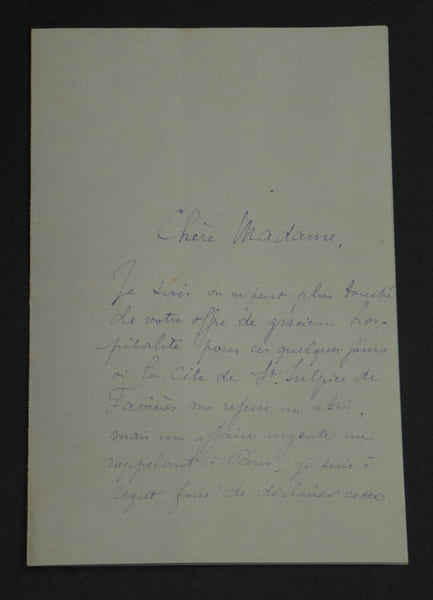 Chère Madame,
Je suis on ne peut plus touché
de votre offre de gracieuse hos-
pitalité pour ces quelques jours
où la Cité de St. Sulpice de
Favières me refuse un abri,
mais une affaire urgente me
rappelant à Paris, je suis à
regret forcé de décliner cette